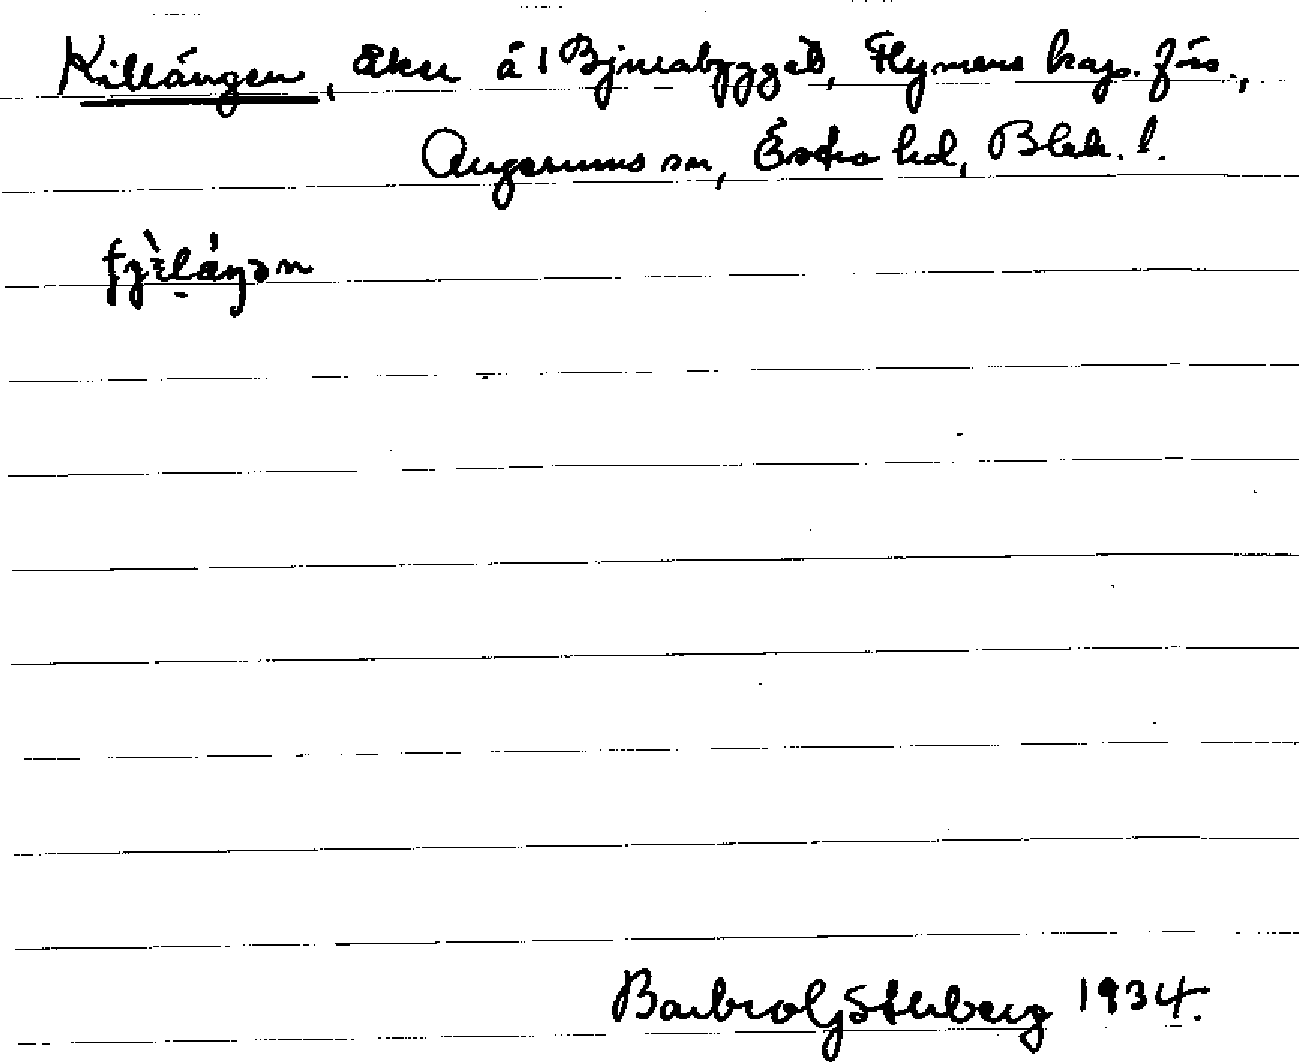 Killängen, åker å 1 Björnabygget, Flymens kap. förs.,
Augerums sn, Östra hd, Blek. l.
Barbro Söderberg 1934.